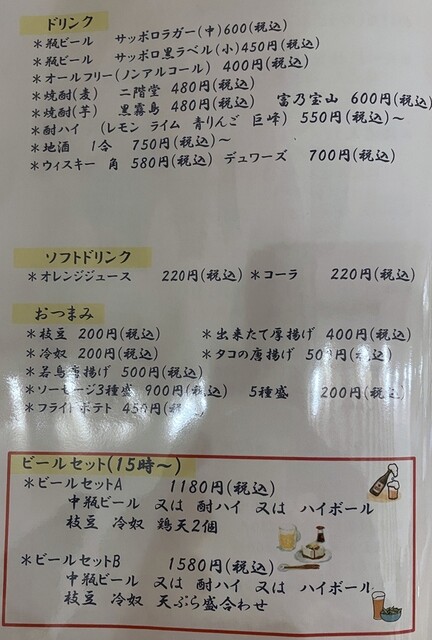 ドリンク
＊瓶ビール　サッポロラガー(中)600(税込)
＊瓶ビール　サッポロ黒ラベル(小)450円(税込)
＊オールフリー(ノンアルコール)　400円(税込)
＊焼酎(麦)　二階堂　480円(税込)
＊焼酎(芋)　黒霧島　480円(税込)　富乃宝山　600円(税込)
＊酎ハイ　(レモン　ライム　青りんご　巨峰)　550円(税込)～
＊地酒　1合　750円(税込)～
＊ウィスキー　角　580円(税込)　デュワーズ　700円(税込)
ソフトドリンク
＊オレンジジュース　220円(税込)　＊コーラ　220円(税込)
おつまみ
＊枝豆　200円(税込)　＊出来たて厚揚げ　400円(税込)
＊冷奴　200円(税込)　＊タコの唐揚げ　500円(税込)
＊若鳥唐揚げ　500円(税込)
＊ソーセージ3種盛　900円(税込)　5種盛　200円(税込)
＊フライドポテト　450円(税
ビールセット(15時～)
＊ビールセットA　1180円(税込)
中瓶ビール　又は　酎ハイ　又は　ハイボール
枝豆　冷奴　鶏天2個
＊ビールセットB　1580円(税込)
中瓶ビール　又は　酎ハイ　又は　ハイボール
枝豆　冷奴　天ぷら盛合わせ